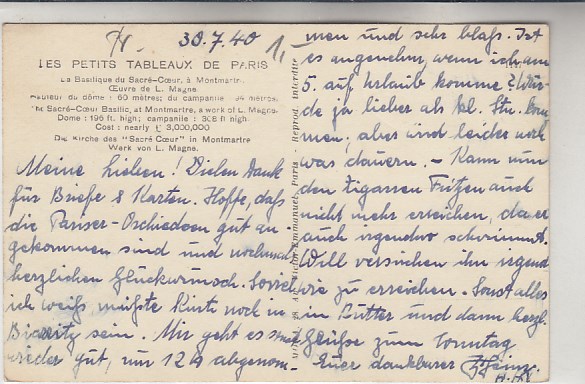 30.7.40
1,-
LES PETITS TABLEAUX DE PARIS
La Basilique du Sacré-Cœur, à Montmartre
Œuvre de L. Magne.
Hauteur du dôme : 60 mètres; du campanile : 84 mètres.
The Sacré-Cœur Basilic, at Montmartre, a work of L. Magne.
Dome : 196 ft. high; campanile : 308 ft high.
Cost : nearly £ 3,000,000
Die Kirche des "Sacré Cœur" in Montmartre
Werk von L. Magne.
Meine Lieben! Vielen Dank
für Briefe & Karten. Hoffe, daß
die Pariser-Orchideen gut an-
gekommen sind und nochmals
herzlichen Glückwunsch.
ich weiß müßte Kurt noch in
Biarritz sein. Mir geht es
wieder gut, nur 12 ℔ abgenom-
men und sehr blaß. Ist
es angenehm, wenn ich am
5. auf Urlaub komme? Wür-
de ja lieber als kom-
men, aber wird leider noch
was dauern. – Kann nun
den Fritzen auch
nicht mehr erreichen, da er
auch irgendwo schwimmt.
Will versuchen ihn irgend
wie zu erreichen. Sonst alles
in Butter und dann herzl.
Grüße zum Sonntag
Euer dankbarer Heinz
Emmanuel, Paris - Reprod. Interdite